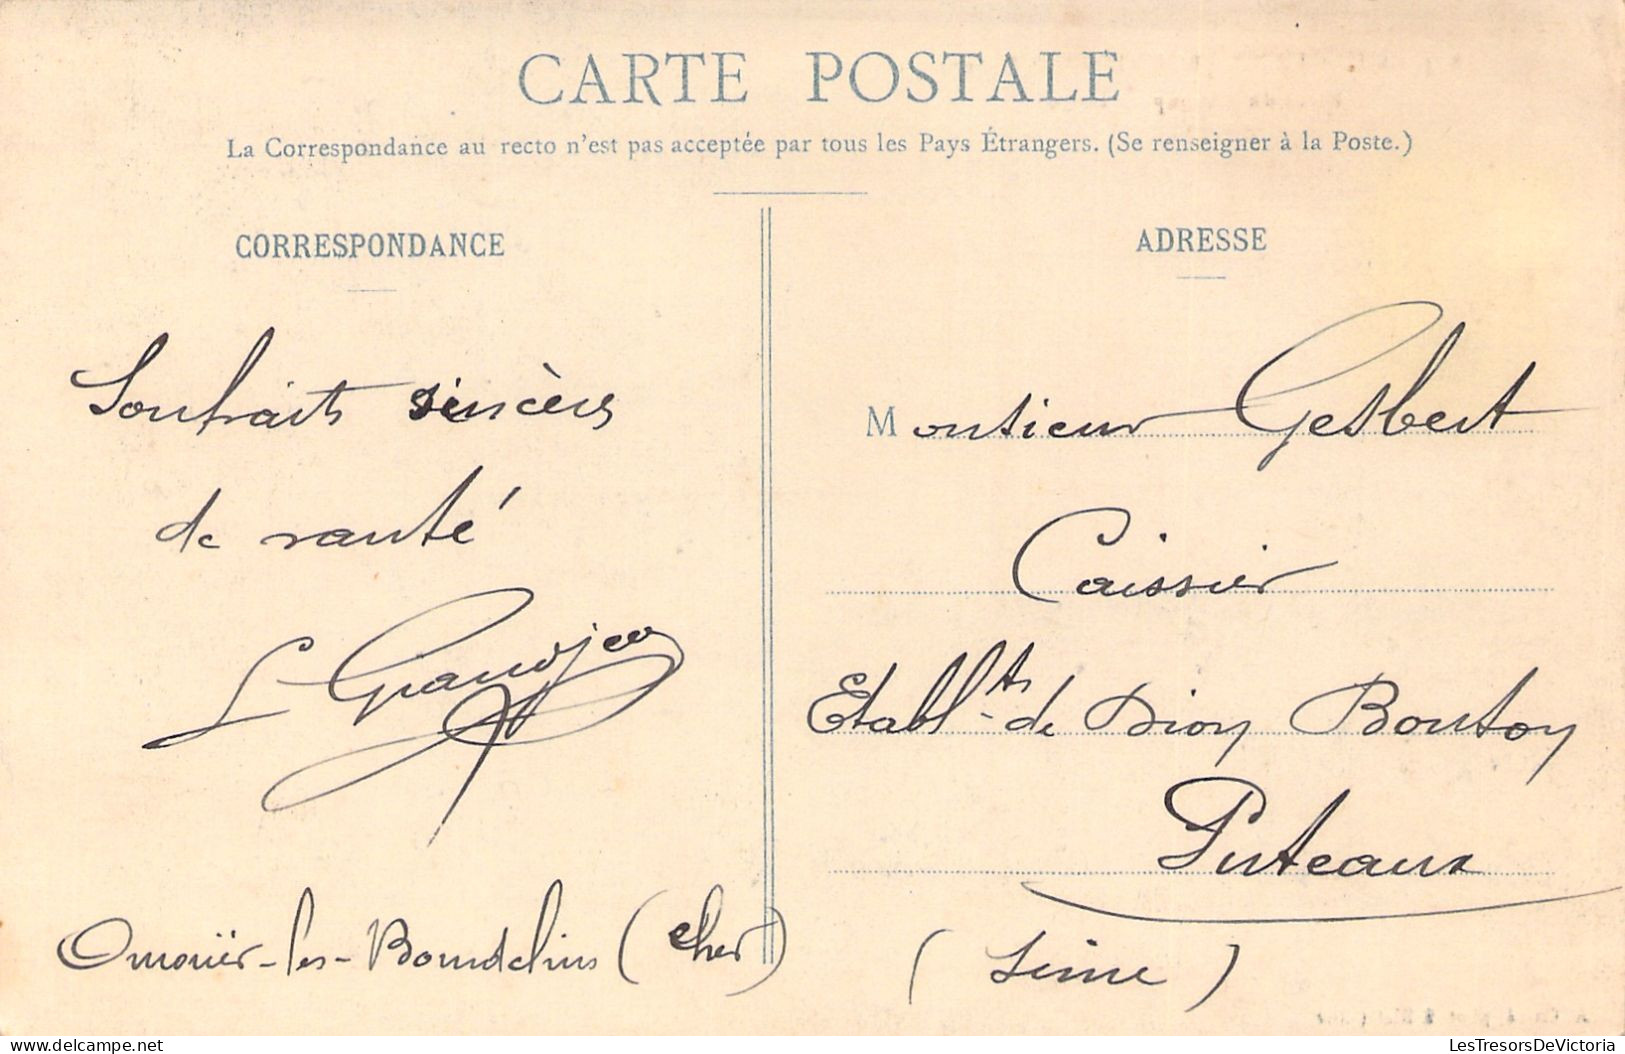 CARTE POSTALE
La Correspondance au recto n'est pas acceptée par tous les Pays Étrangers. (Se renseigner à la Poste.)
CORRESPONDANCE
Souhaits sincères
de santé
L Grandjea
les-Bourdelins (Cher)
ADRESSE
Monsieur Gesbert
Caissier
Etabl.ts de Dion Bouton
Puteaux
(Seine)
LesTresorsDeVictoria.com